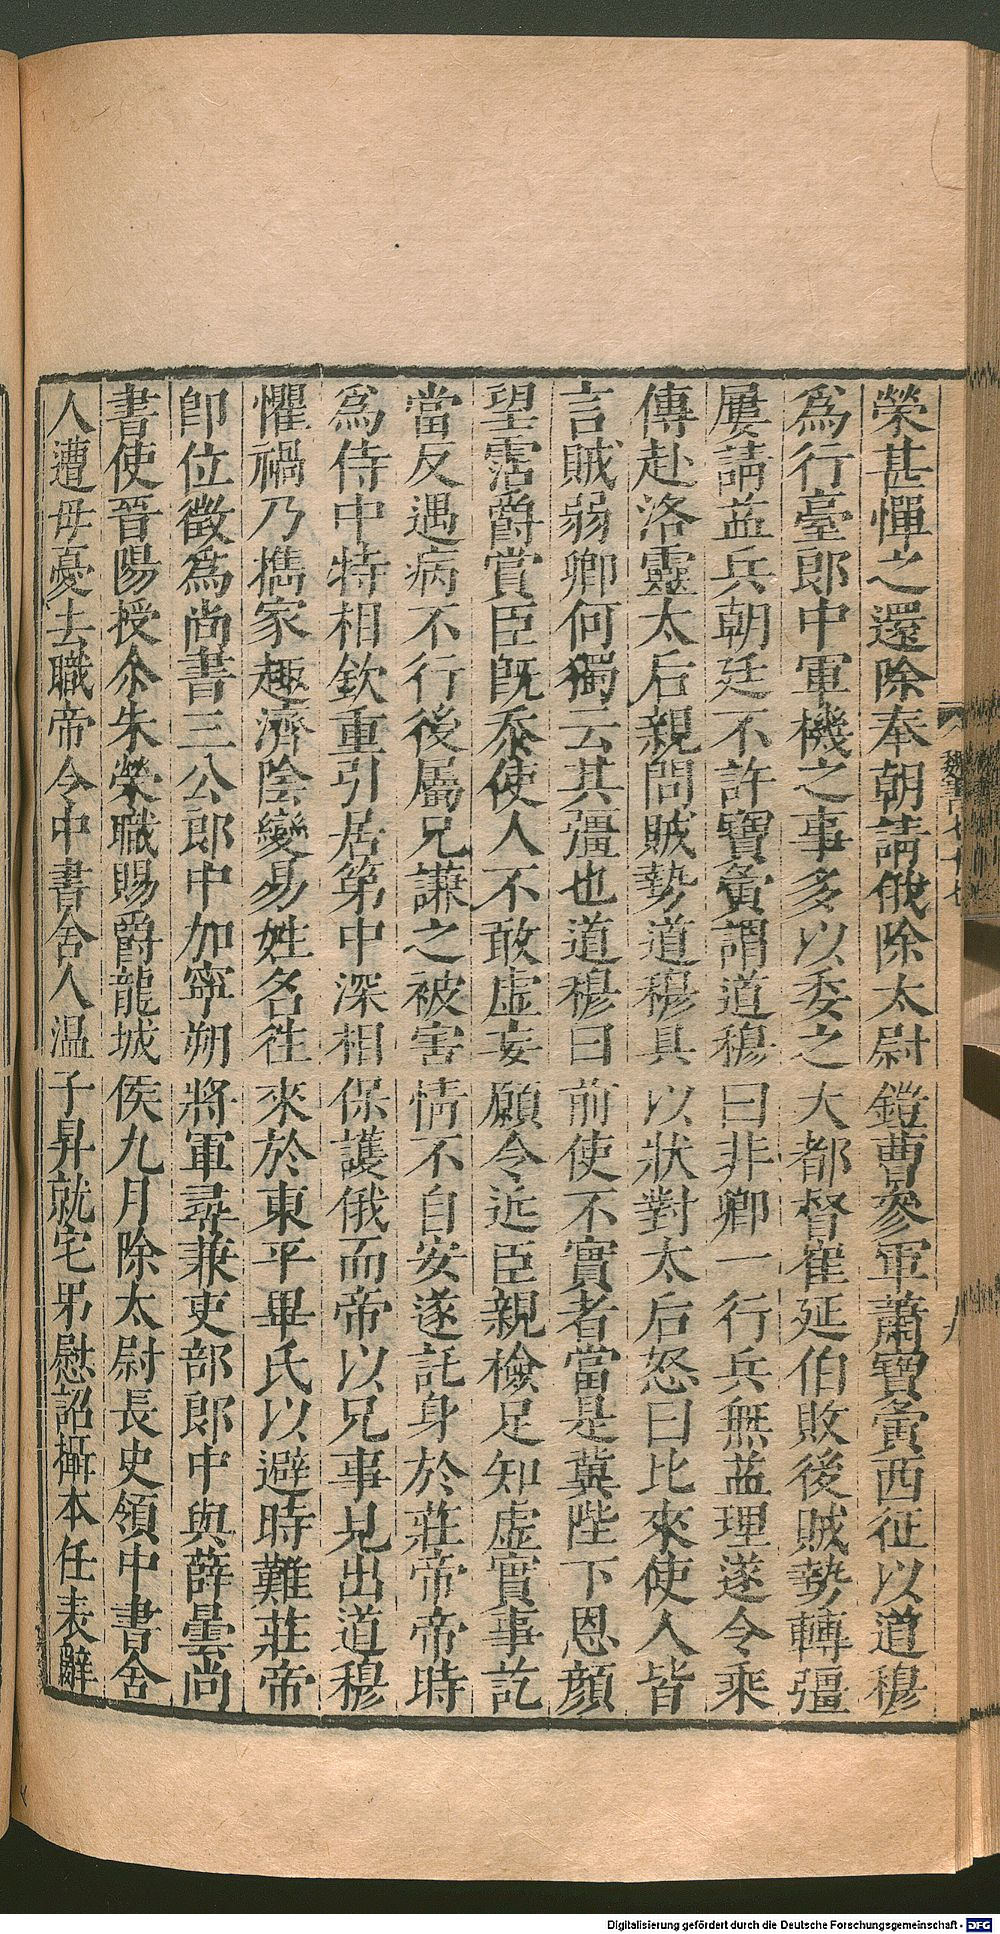 榮甚憚之還除奉朝請俄除太尉鎧曹參軍蕭寶夤西征以道穆
爲行臺郎中軍機之事多以委之大都督崔延伯敗後賊勢轉彊
屢請益兵朝廷不許寶夤謂道穆曰非卿一行兵無益理遂令乘
傳赴洛靈太后親問賊勢道穆具以狀對太后怒曰比來使人皆
言賊弱卿何獨云其彊也道穆曰前使不實者當是冀陛下恩顏
望霑爵賞臣既忝使人不敢虛妄願令近臣親檢足知虛實事訖
當反遇病不行後屬兄謙之被害情不自安遂託身於莊帝帝時
爲侍中特相欽重引居第中深相保護俄而帝以兄事見出道穆
懼禍乃攜家趣濟陰變易姓名往來於東平畢氏以避時難莊帝
卽位徵爲尚書三公郎中加寧朔將軍尋兼吏部郎中與薛曇尚
書使晉陽授尒朱榮職賜爵龍城侯九月除太尉長史領中書舍
人遭母憂去職帝令中書舍人溫子昇就宅弔慰詔攝本任表辭
魏書 七十七
九
Digitalisierung gefördert durch die Deutsche Forschungsgemeinschaft - DFG